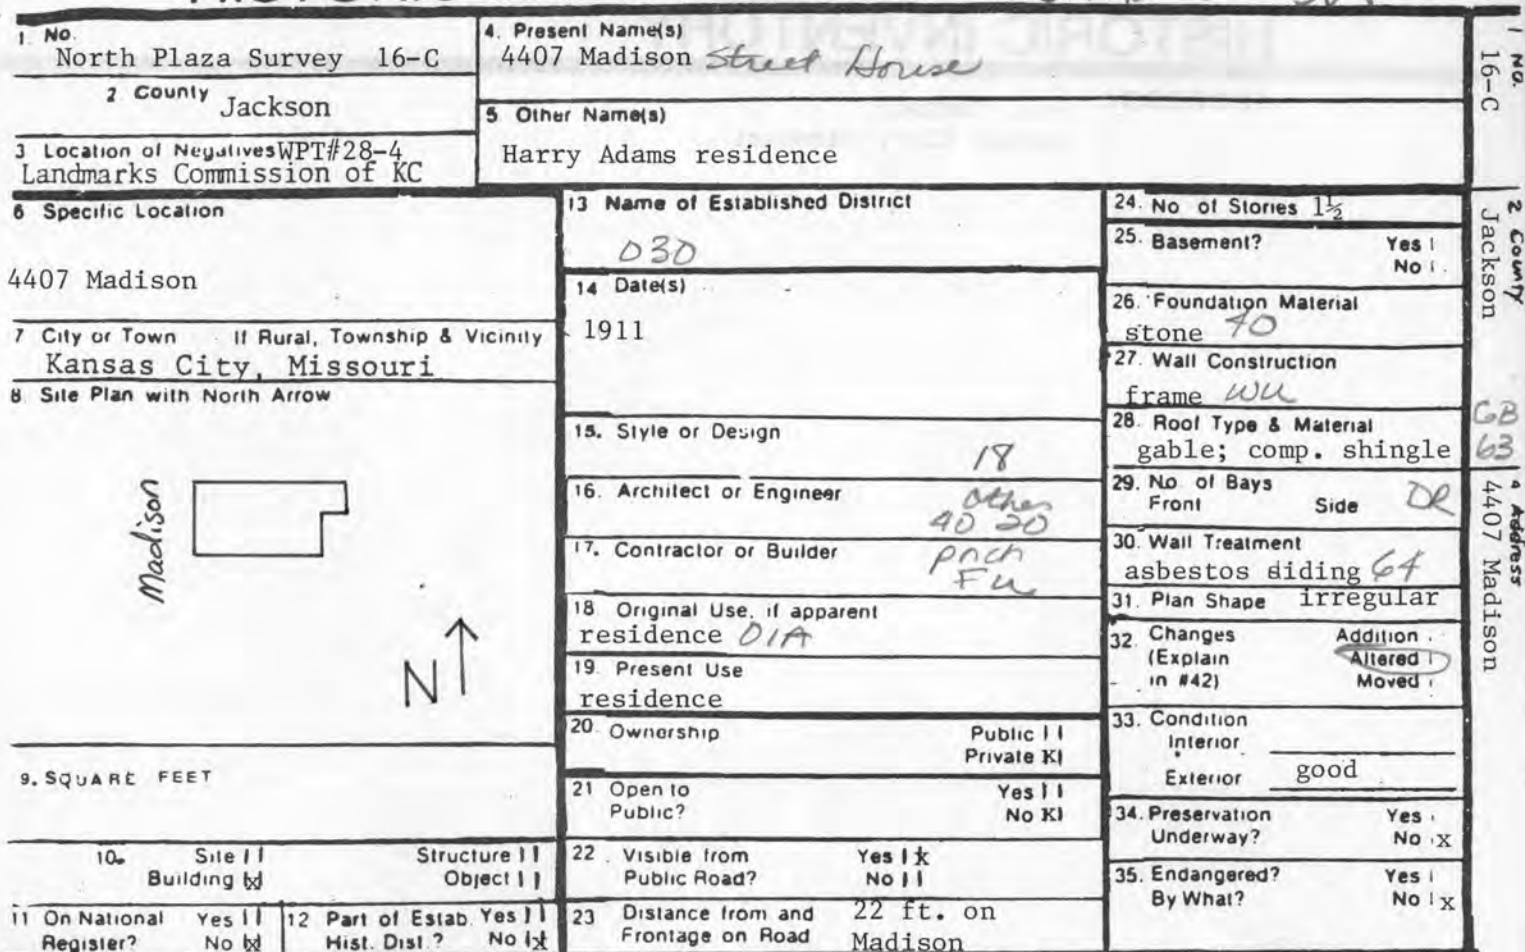 1. No.
North Plaza Survey 16-C
2 County Jackson
3 Location of Negatives WPT#28-4
Landmarks Commission of KC
4. Present Name(s)
4407 Madison Street House
5 Other Name(s)
Harry Adams residence
6 Specific Location
4407 Madison
7 City or Town If Rural, Township & Vicinity
Kansas City, Missouri
8 Site Plan with North Arrow
Madison
N
9. SQUARE FEET
10. Site Structure
Building x Object
11 On National Yes
Register? No x
12 Part of Estab. Yes
Hist. Dist.? No x
13 Name of Established District
030
14 Date(s)
1911
15. Style or Design
18
16. Architect or Engineer
other
40 20
17. Contractor or Builder
pnch
Fu
18 Original Use, if apparent
residence 01A
19. Present Use
residence
20 Ownership Public
Private X
21 Open to Yes
Public? No X
22. Visible from Yes x
Public Road? No
23 Distance from and 22 ft. on
Frontage on Road Madison
24. No of Stories 1½
25. Basement? Yes
No
26. Foundation Material
stone 40
27. Wall Construction
frame WU
28. Roof Type & Material
gable; comp. shingle
GB
63
29. No. of Bays
Front Side DR
30. Wall Treatment
asbestos siding 64
31. Plan Shape irregular
32. Changes Addition
(Explain Altered
in #42) Moved
33. Condition
Interior
Exterior good
34. Preservation Yes
Underway? No x
35. Endangered? Yes
By What? No x
1 No.
16-C
2 County
Jackson
4 Address
4407 Madison